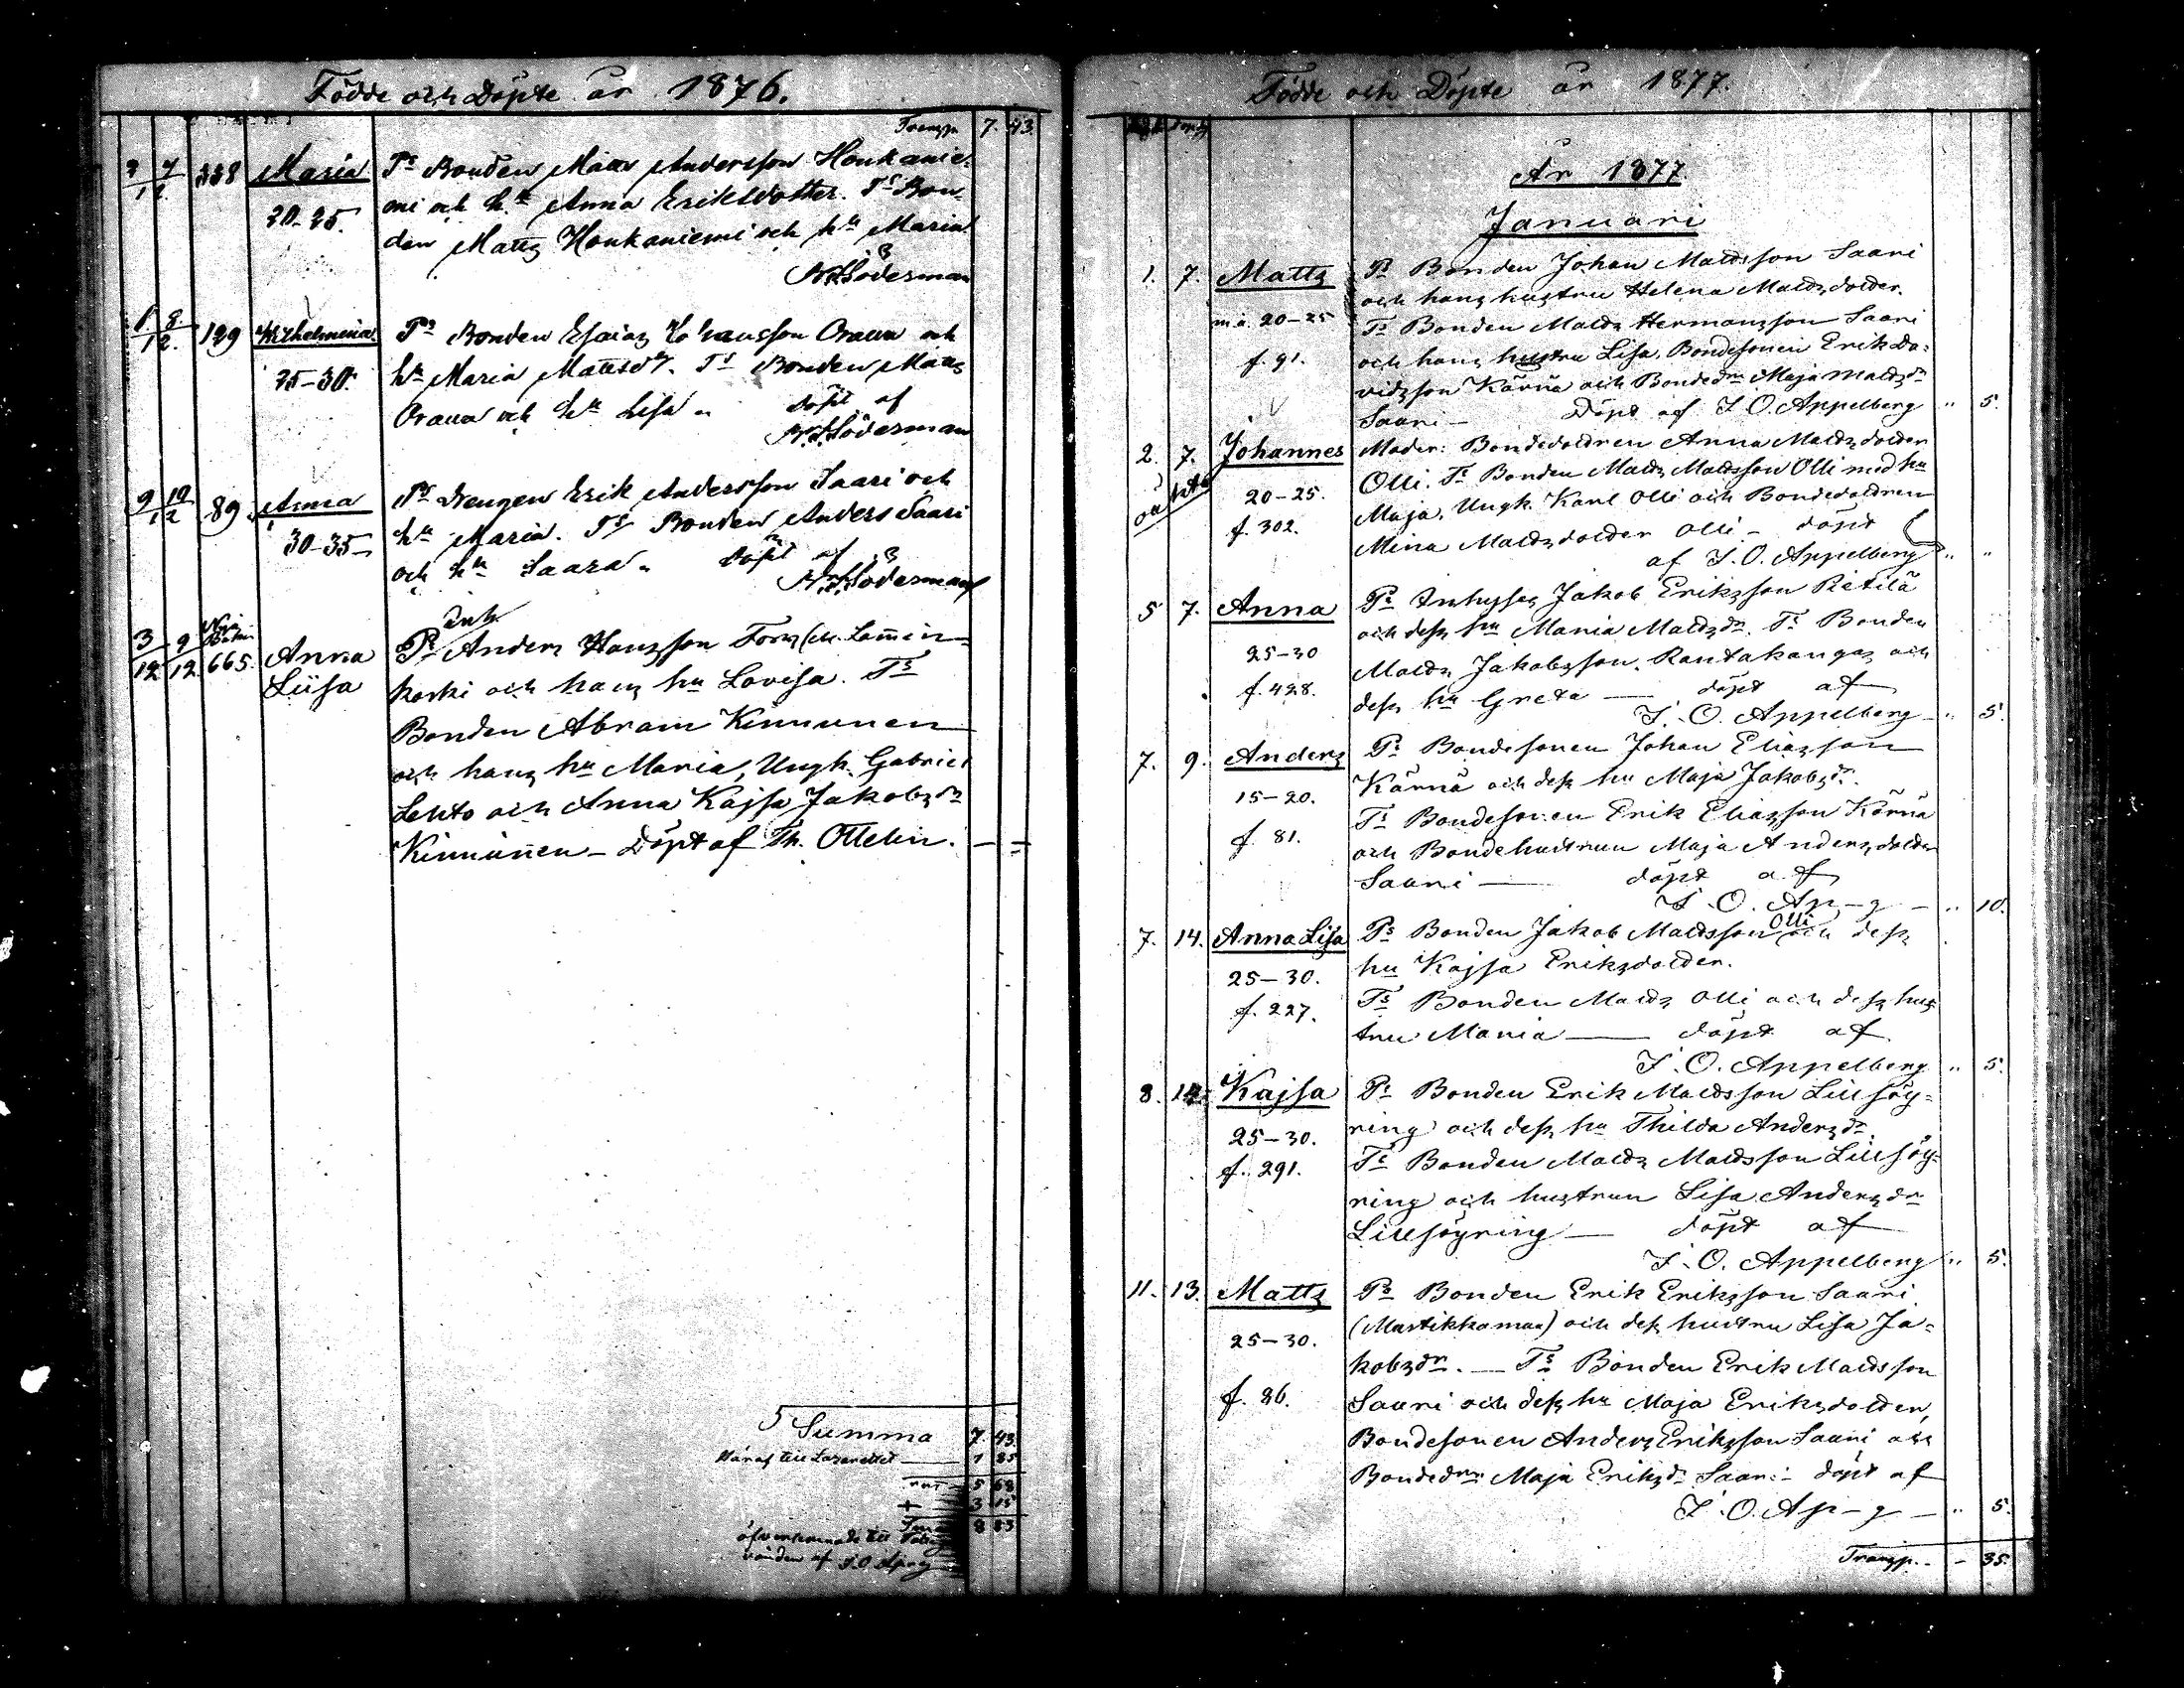 Födde och Döpte år 1876.
Transp. 7. 43.
7/12 338 Maria Ps Bonden Matts Andersson Honkanie-
20-25. mi och hu Anna Eriksdotter. Ts Bon-
den Matts Honkaniemi och hu Maria
Söderman
1/12 8/12. 129 Wilhelmina Ps Bonden Esaias Johansson Orava och
25-30. hu Maria Mattsdr. Ts Bonden Matts
Orava och hu Lisa döpt af
Söderman
9/12 10/12 89 Anna Ps Drengen Erik Andersson Saari och
30-35 hu Maria. Ts Bonden Anders Saari
och hu Saara döpt af
Söderman
Inh.
3/12 9/12 665. Anna Liisa Ps Anders Hansson Forss (fr. Lamin-
koski och hans hu Lovisa. Ts
Bonden Abram Kinnunen
och hans hu Maria, Ungk. Gabriel
Lehto och Anna Kajsa Jakobsdr
Kinnunen – Döpt af Th. Ottelin. – =
5 Summa 7. 43.
Häraf till Lazarettet 1 85
5 58
+ 3 15
8 83
af I.O. Ap-g
Födde och Döpte år 1877.
År 1877.
Januari
1. 7. Matts Ps Bonden Johan Mattsson Saari
och hans hustru Helena Mattsdotter.
m.ä. 20-25 Ts Bonden Matts Hermansson Saari
f. 91. och hans hustru Lisa, Bondesonen Erik Da-
vidsson Kärnä och Bondedrn Maja Mattsdr
Saari – Döpt af I.O. Appelberg " 5.
2. 7. Johannes Moder: Bondedottren Anna Mattsdotter
oäkta 20-25. Olli. Ts Bonden Matts Mattsson Olli med hu
f. 302. Maja, Ungk. Karl Olli och Bondedottren
Mina Mattsdotter Olli – döpt
af I.O. Appelberg " "
5 7. Anna Ps Inhyses Jakob Eriksson Pietilä
och dess hu Maria Mattsdr. Ts Bonden
25-30 Matts Jakobsson Rantakangas och
f. 428. dess hu Greta — döpt af
I.O. Appelberg " 5.
7. 9. Anders Ps Bondesonen Johan Eliasson
Kärnä och dess hu Maja Jakobsdr.
15-20. Ts Bondesonen Erik Eliasson Kärnä
f. 81. och Bondehustrun Maja Andersdotter
Saari — döpt af
I.O. Ap-g – " 10.
7. 14. Anna Lisa Ps Bonden Jakob Mattsson Olli och dess
25-30. hu Kajsa Eriksdotter.
f. 227. Ts Bonden Matts Olli och dess hus-
tru Maria — döpt af
I.O. Appelberg " 5.
8. 14. Kajsa Ps Bonden Erik Mattsson Lillsöy-
25-30. ring och dess hu Thilda Andersdr
f. 291. Ts Bonden Matts Mattsson Lillsöy-
ring och hustrun Lisa Andersdr
Lillsöyring — döpt af
I.O. Appelberg " 5.
11. 13. Matts Ps Bonden Erik Eriksson Saari
25-30. (Mustikkamaa) och dess hustru Lisa Ja-
kobsdr. — Ts Bonden Erik Mattsson
f. 86. Saari och dess hu Maja Eriksdotter,
Bondesonen Anders Eriksson Saari och
Bondedrn Maja Eriksdr Saari – döpt af
I.O. Ap-g – " 5.
Transp. – – 35.